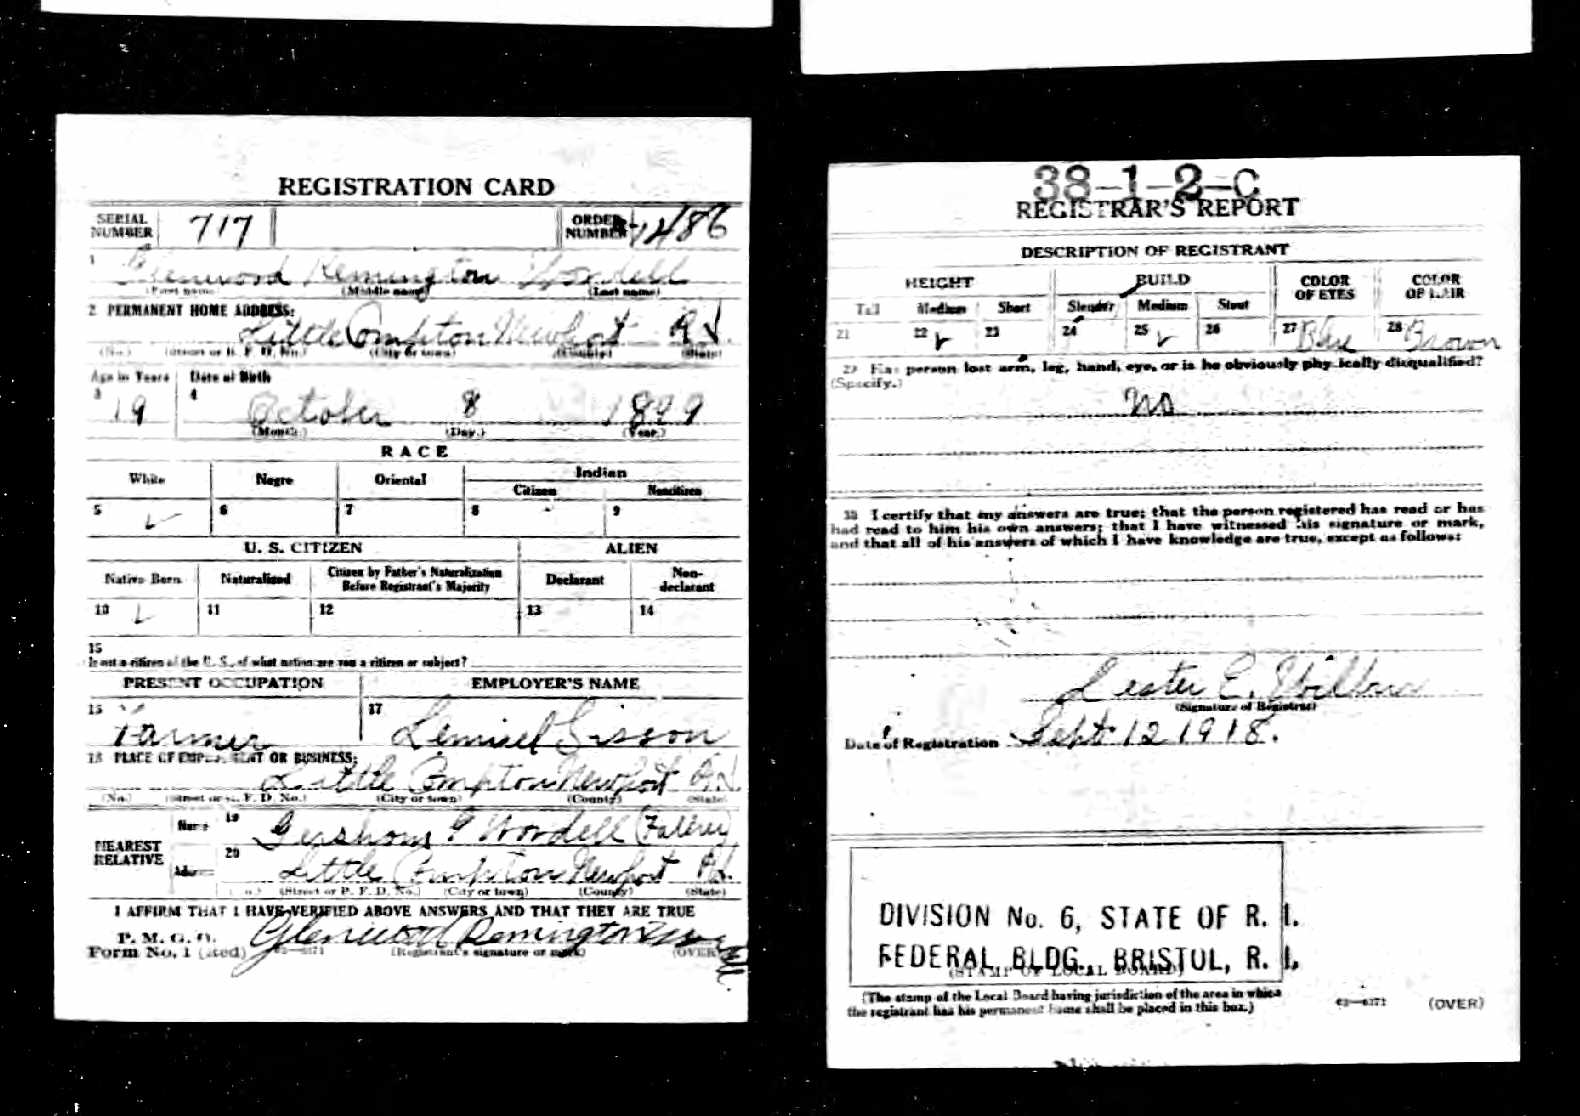 REGISTRATION CARD
SERIAL NUMBER 717 ORDER NUMBER 1486
1 Glenwood Remington Wordell
(First name) (Middle name) (Last name)
2 PERMANENT HOME ADDRESS:
Little Compton Newport R.I.
(No.) (Street or R. F. D. No.) (City or town) (County) (State)
Age in Years Date of Birth
3 19 4 October 8 1899
(Month.) (Day.) (Year.)
RACE
White Negro Oriental Indian
Citizen Noncitizen
5 ✓ 6 7 8 9
U. S. CITIZEN ALIEN
Native Born Naturalized Citizen by Father's Naturalization Before Registrant's Majority Declarant Non-declarant
10 ✓ 11 12 13 14
15
If not a citizen of the U. S., of what nation are you a citizen or subject?
PRESENT OCCUPATION EMPLOYER'S NAME
16 Farmer 17 Lemuel Sisson
18 PLACE OF EMPLOYMENT OR BUSINESS:
Little Compton Newport R.I.
(No.) (Street or R. F. D. No.) (City or town) (County) (State)
NEAREST RELATIVE
Name 19 Gershom F Wordell (Father)
Address 20 Little Compton Newport R.I.
(No.) (Street or R. F. D. No.) (City or town) (County) (State)
I AFFIRM THAT I HAVE VERIFIED ABOVE ANSWERS AND THAT THEY ARE TRUE
P. M. G. O.
Form No. 1 (Red) Glenwood Remington Wordell
03—6171 (Registrant's signature or mark) (OVER)
38-1-2-C
REGISTRAR'S REPORT
DESCRIPTION OF REGISTRANT
HEIGHT BUILD COLOR OF EYES COLOR OF HAIR
Tall Medium Short Slender Medium Stout
21 22 ✓ 23 24 25 ✓ 26 27 Blue 28 Brown
29 Has person lost arm, leg, hand, eye, or is he obviously physically disqualified?
(Specify.)
No
30 I certify that my answers are true; that the person registered has read or has
had read to him his own answers; that I have witnessed his signature or mark,
and that all of his answers of which I have knowledge are true, except as follows:
Lester E. Wilbur
(Signature of Registrar)
Date of Registration Sept 12 1918.
DIVISION No. 6, STATE OF R. I.
FEDERAL BLDG., BRISTOL, R. I.
(STAMP OF LOCAL BOARD)
(The stamp of the Local Board having jurisdiction of the area in which
the registrant has his permanent home shall be placed in this box.)
03—6171 (OVER)